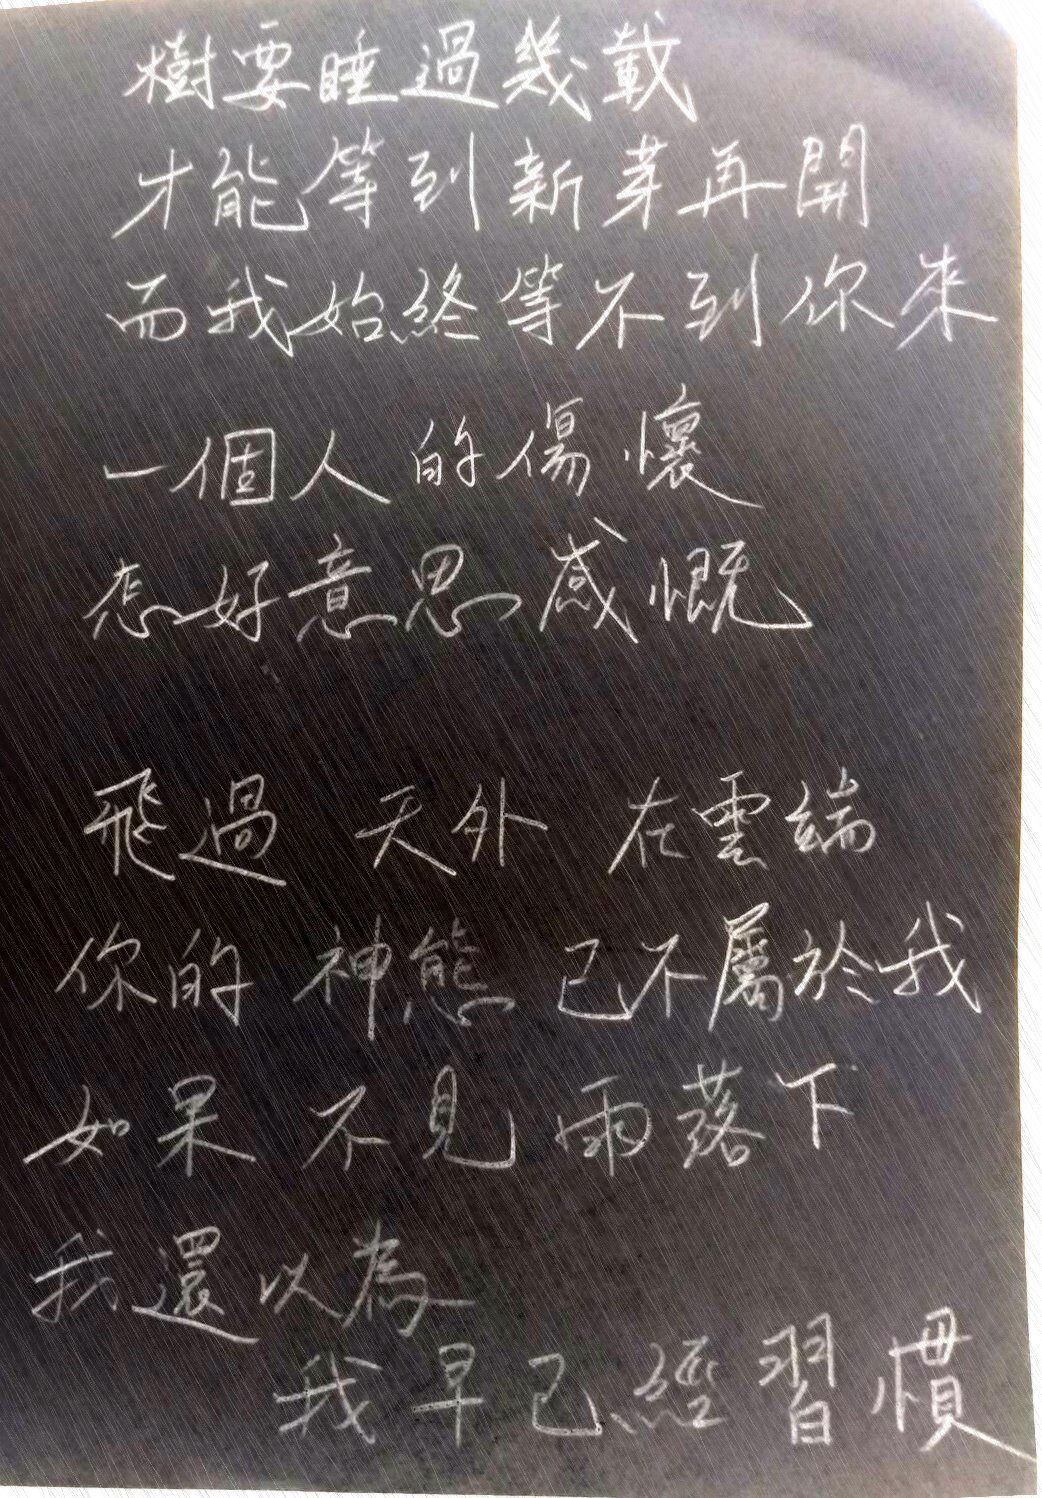 樹要睡過幾載
才能等到新芽再開
而我始終等不到你來
一個人的傷懷
怎好意思感慨
飛過 天外 在雲端
你的 神態 已不屬於我
如果 不見 雨落下
我還以為
我早已經習慣